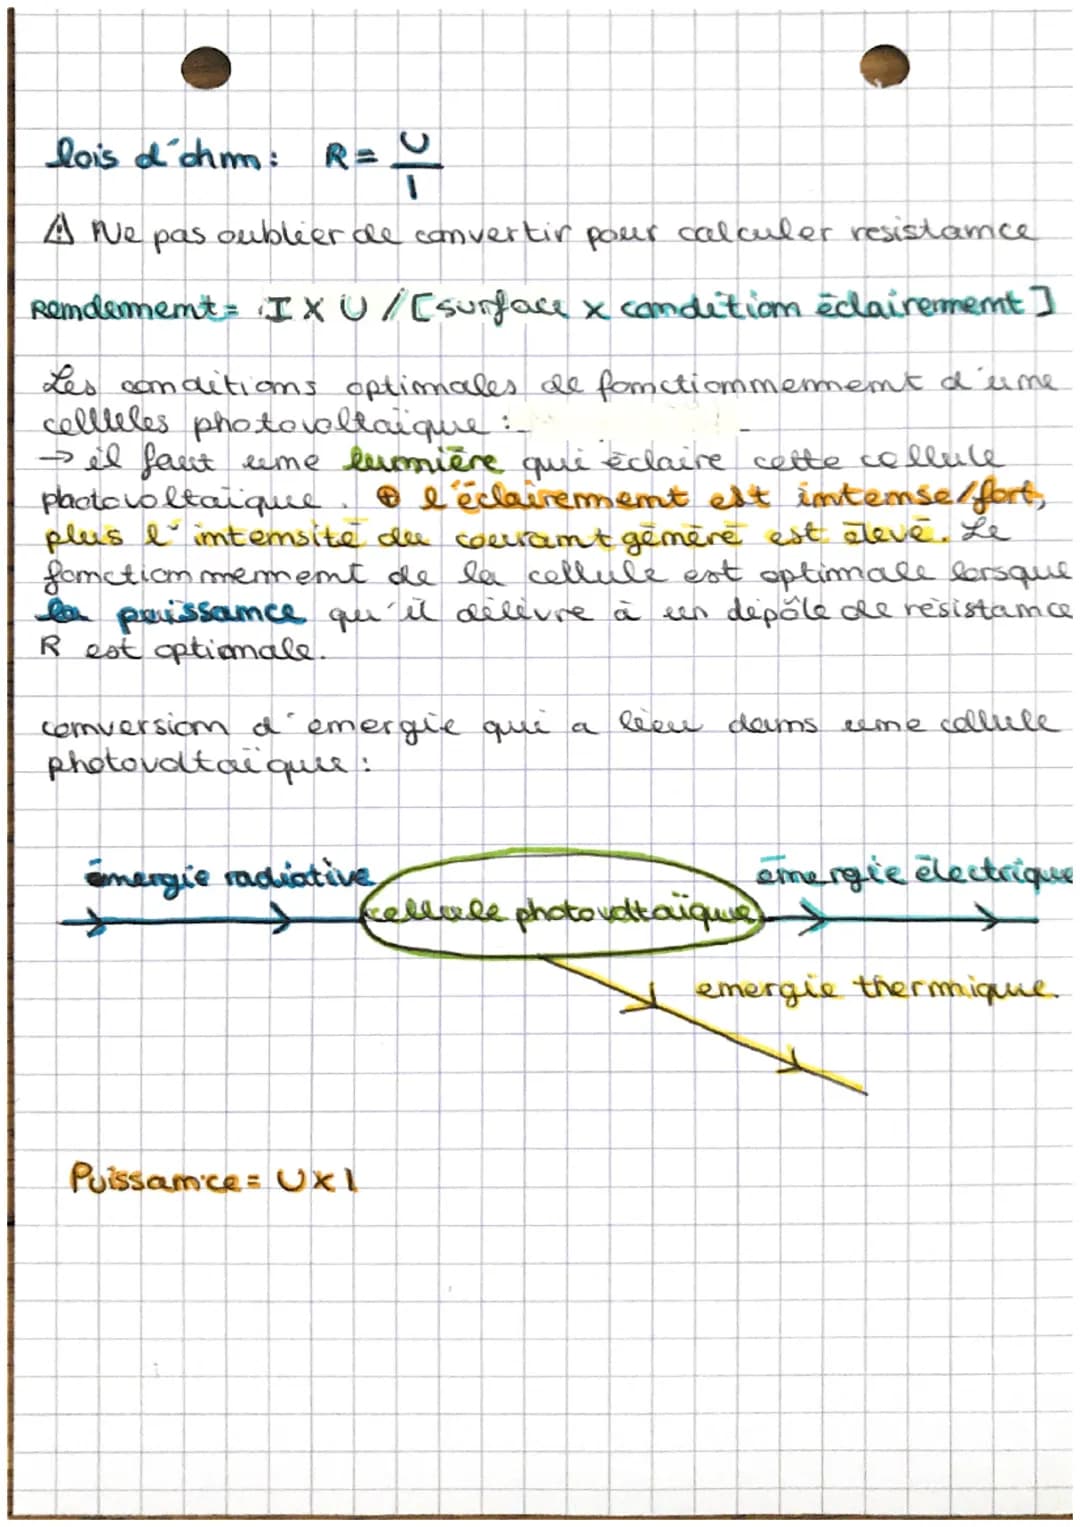 lois d'ohm: R = U/I
⚠ Ne pas oublier de convertir pour calculer resistance
Rendement = I X U / [surface x condition éclairement]
Les conditions optimales de fonctionnement d'une
cellules photovoltaïque :
→ il faut une lumière qui éclaire cette cellule
photovoltaïque. ⊕ l'éclairement est intense/fort,
plus l'intensité du courant généré est élevé. Le
fonctionnement de la cellule est optimale lorsque
la puissance qu'il délivre à un dépôle de résistance
R est optimale.
conversion d'energie qui a lieu dans une cellule
photovoltaïque :
énergie radiative
cellule photovoltaïque
énergie électrique
energie thermique.
Puissance = U x I